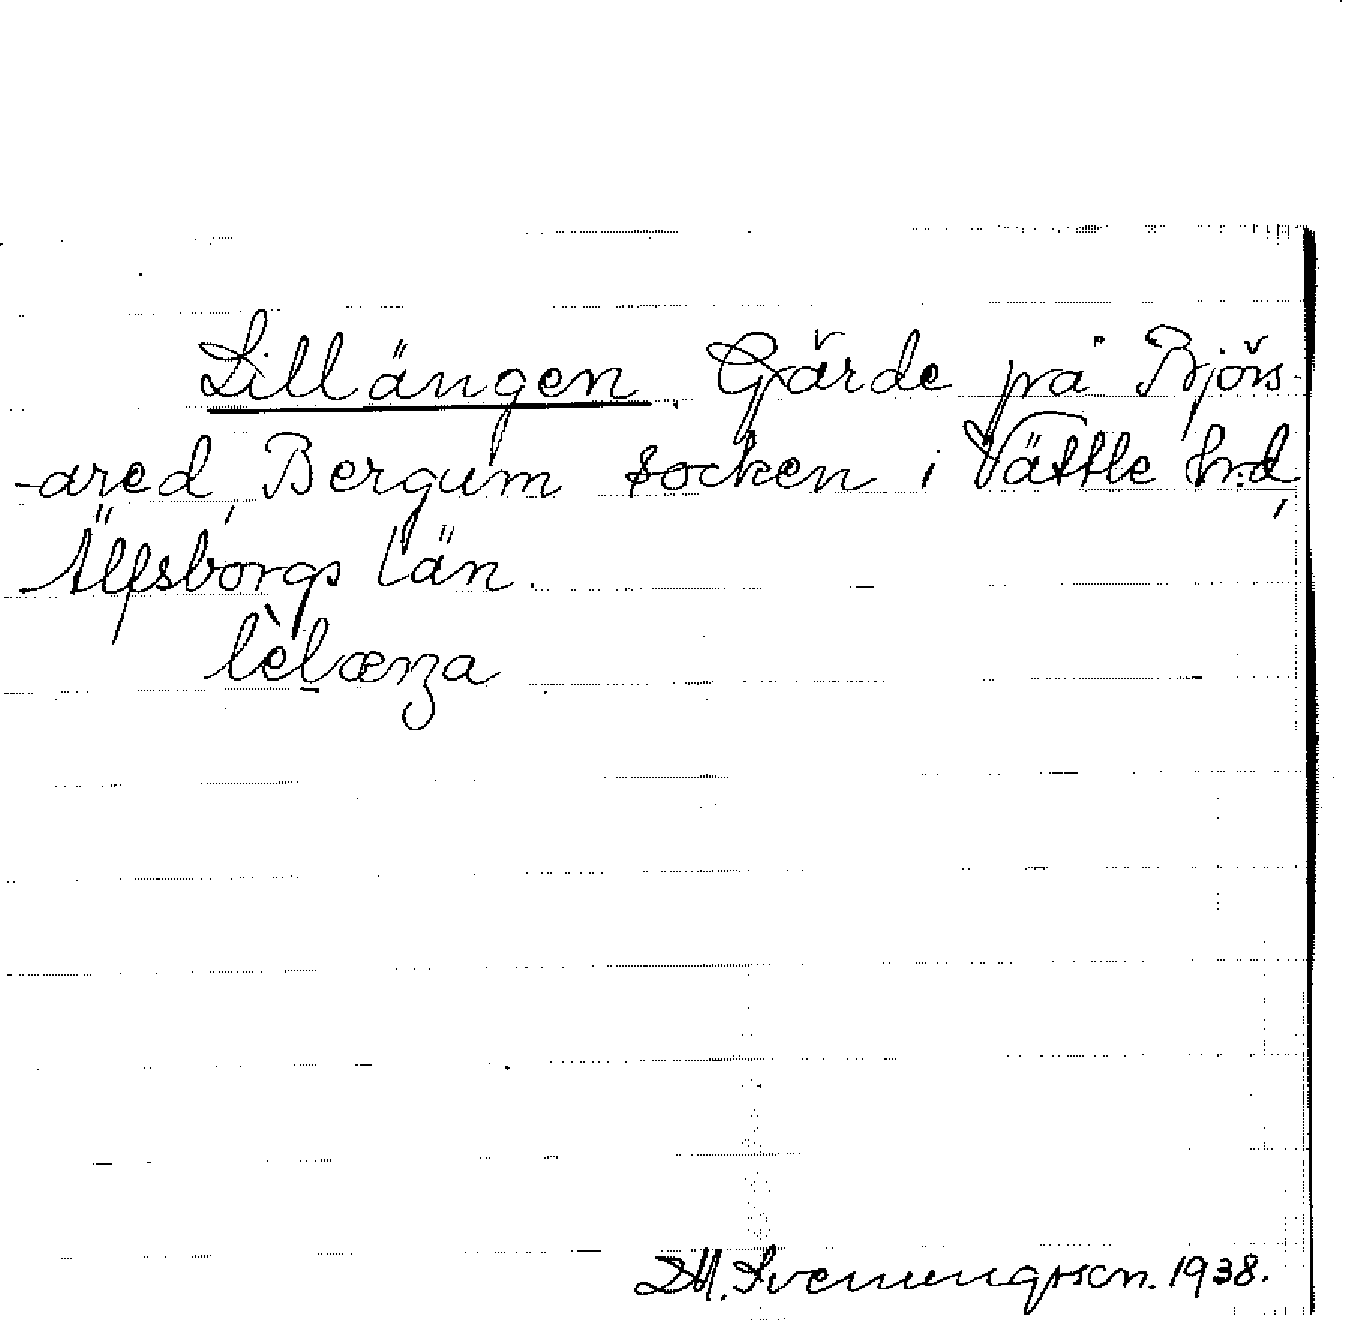 Lillängen. Gärde på Björs-
-ared, Bergum socken i Vättle hrd,
Älfsborgs län.
lèlænza
D.M. Svenungsson. 1938.